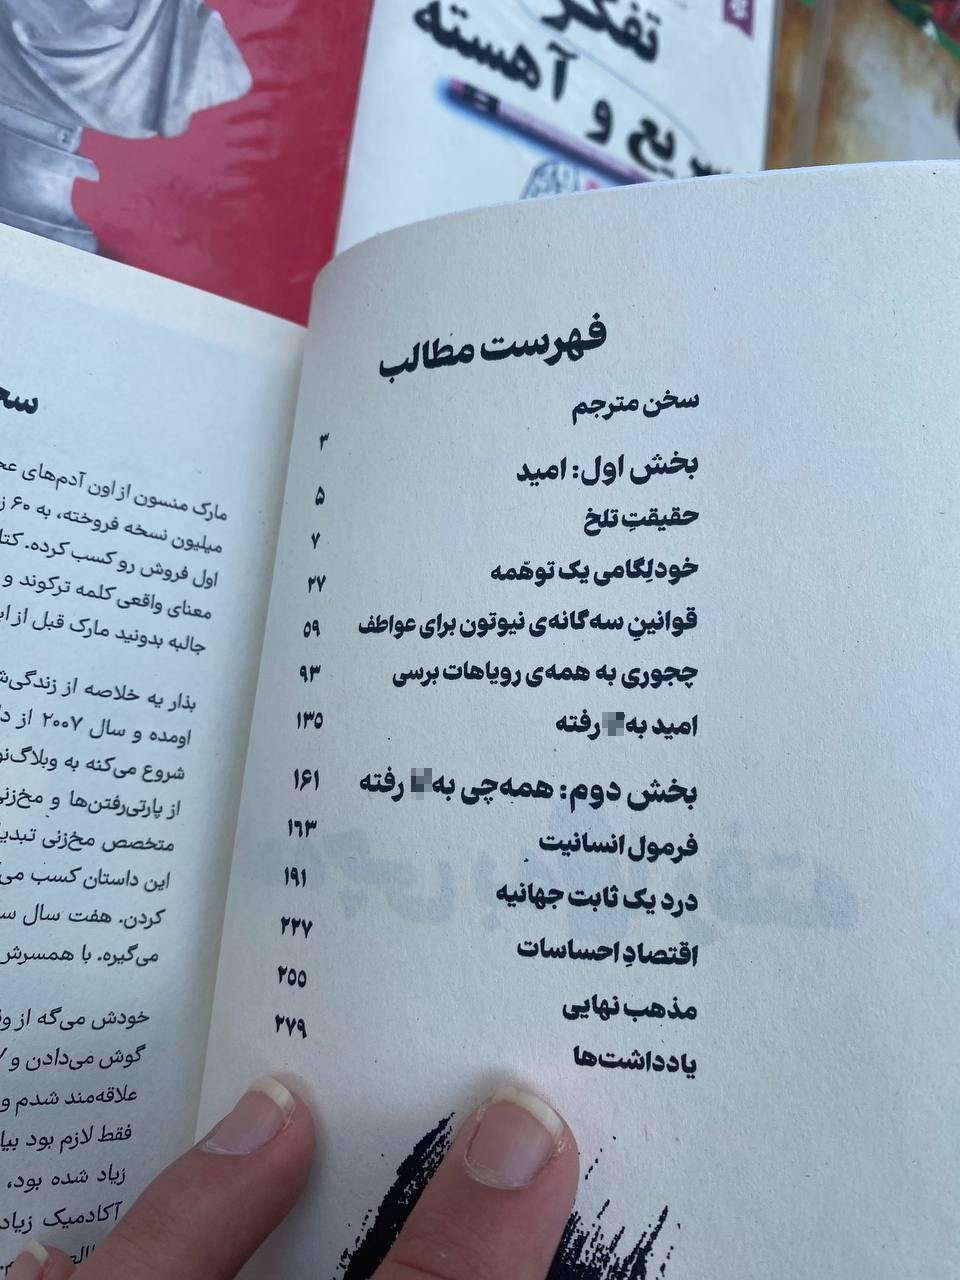 تفکر
سریع و آهسته
فهرست مطالب
سخن مترجم ۳
بخش اول: امید ۵
حقیقتِ تلخ ۷
خودلِگامی یک توهّمه ۲۷
قوانینِ سه‌گانه‌ی نیوتون برای عواطف ۵۹
چجوری به همه‌ی رویاهات برسی ۹۳
امید به رفته ۱۳۵
بخش دوم: همه‌چی به رفته ۱۶۱
فرمول انسانیت ۱۶۳
درد یک ثابت جهانیه ۱۹۱
اقتصادِ احساسات ۲۲۷
مذهب نهایی ۲۵۵
یادداشت‌ها ۲۷۹
مارک منسون از اون آدم‌های
میلیون نسخه فروخته، به ۶۰
اول فروش رو کسب کرده.
معنای واقعی کلمه ترکوند و
جالبه بدونید مارک قبل از
بذار یه خلاصه از
اومده و سال ۲۰۰۷ از
شروع می‌کنه به
از پارتی‌رفتن‌ها و
متخصص مخ‌زنی
این داستان کسب
کردن. هفت سال
می‌گیره. با همسرش
خودش می‌گه از
گوش می‌دادن و
علاقه‌مند شدم و
فقط لازم بود
زیاد شده بود،
آکادمیک زیاد